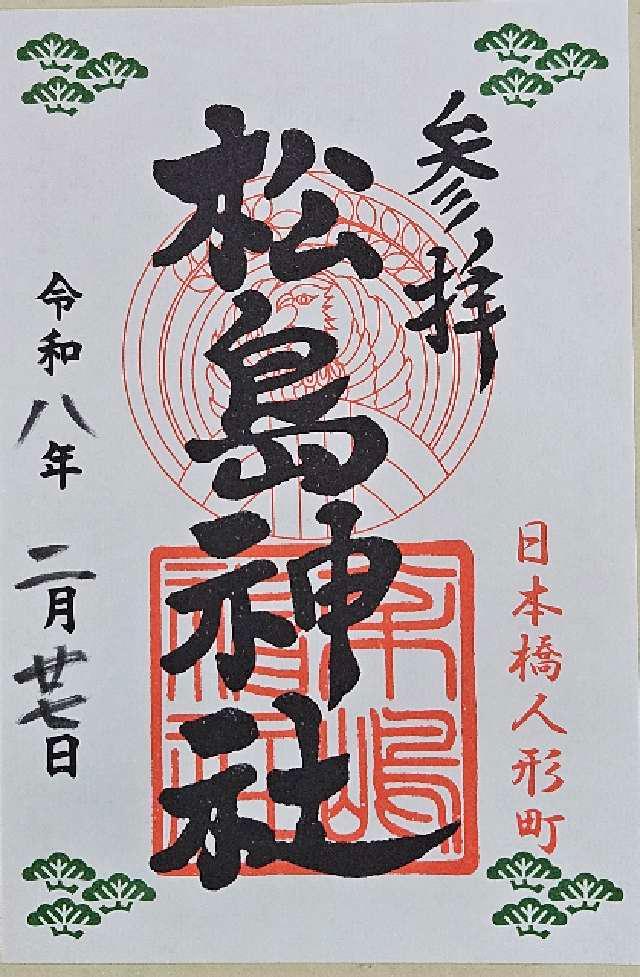 参拝
日本橋人形町
松島神社
令和八年二月廿七日